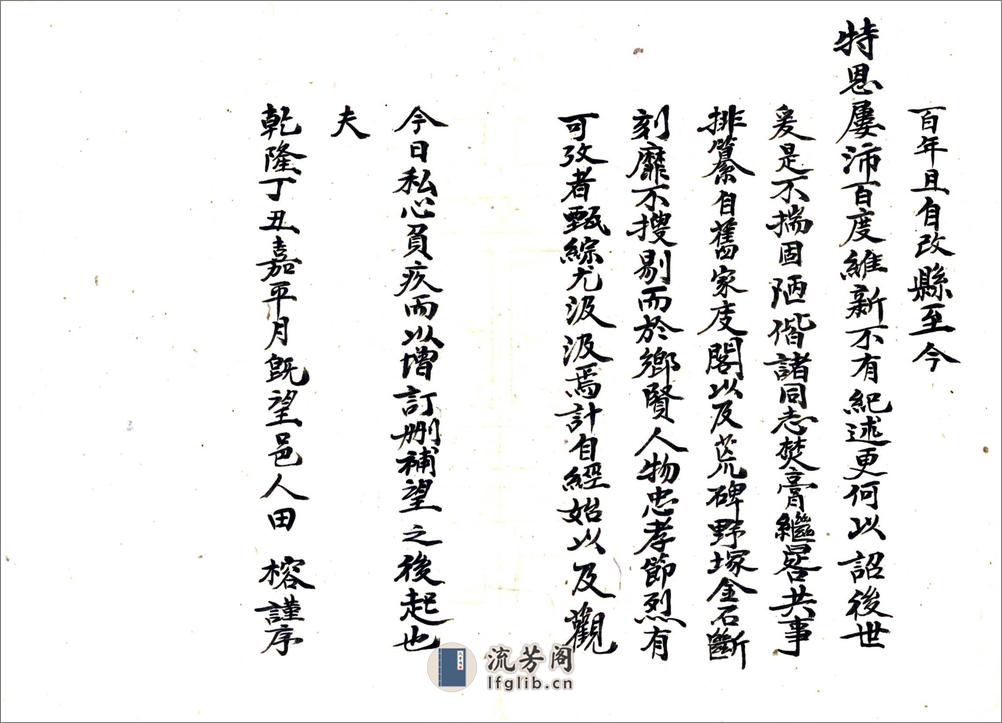 百年且自改縣至今
特恩屢沛百度維新不有紀述更何以詔後世
爰是不揣固陋偕諸同志焚膏繼晷共事
排纂自舊家庋閣以及荒碑野塚金石斷
刻靡不搜剔而於鄉賢人物忠孝節烈有
可攷者甄綜尤汲汲焉計自經始以及觀
今日私心負疚而以增訂刪補望之後起也
夫
乾隆丁丑嘉平月旣望邑人田榕謹序
流芳阁
lfglib.cn